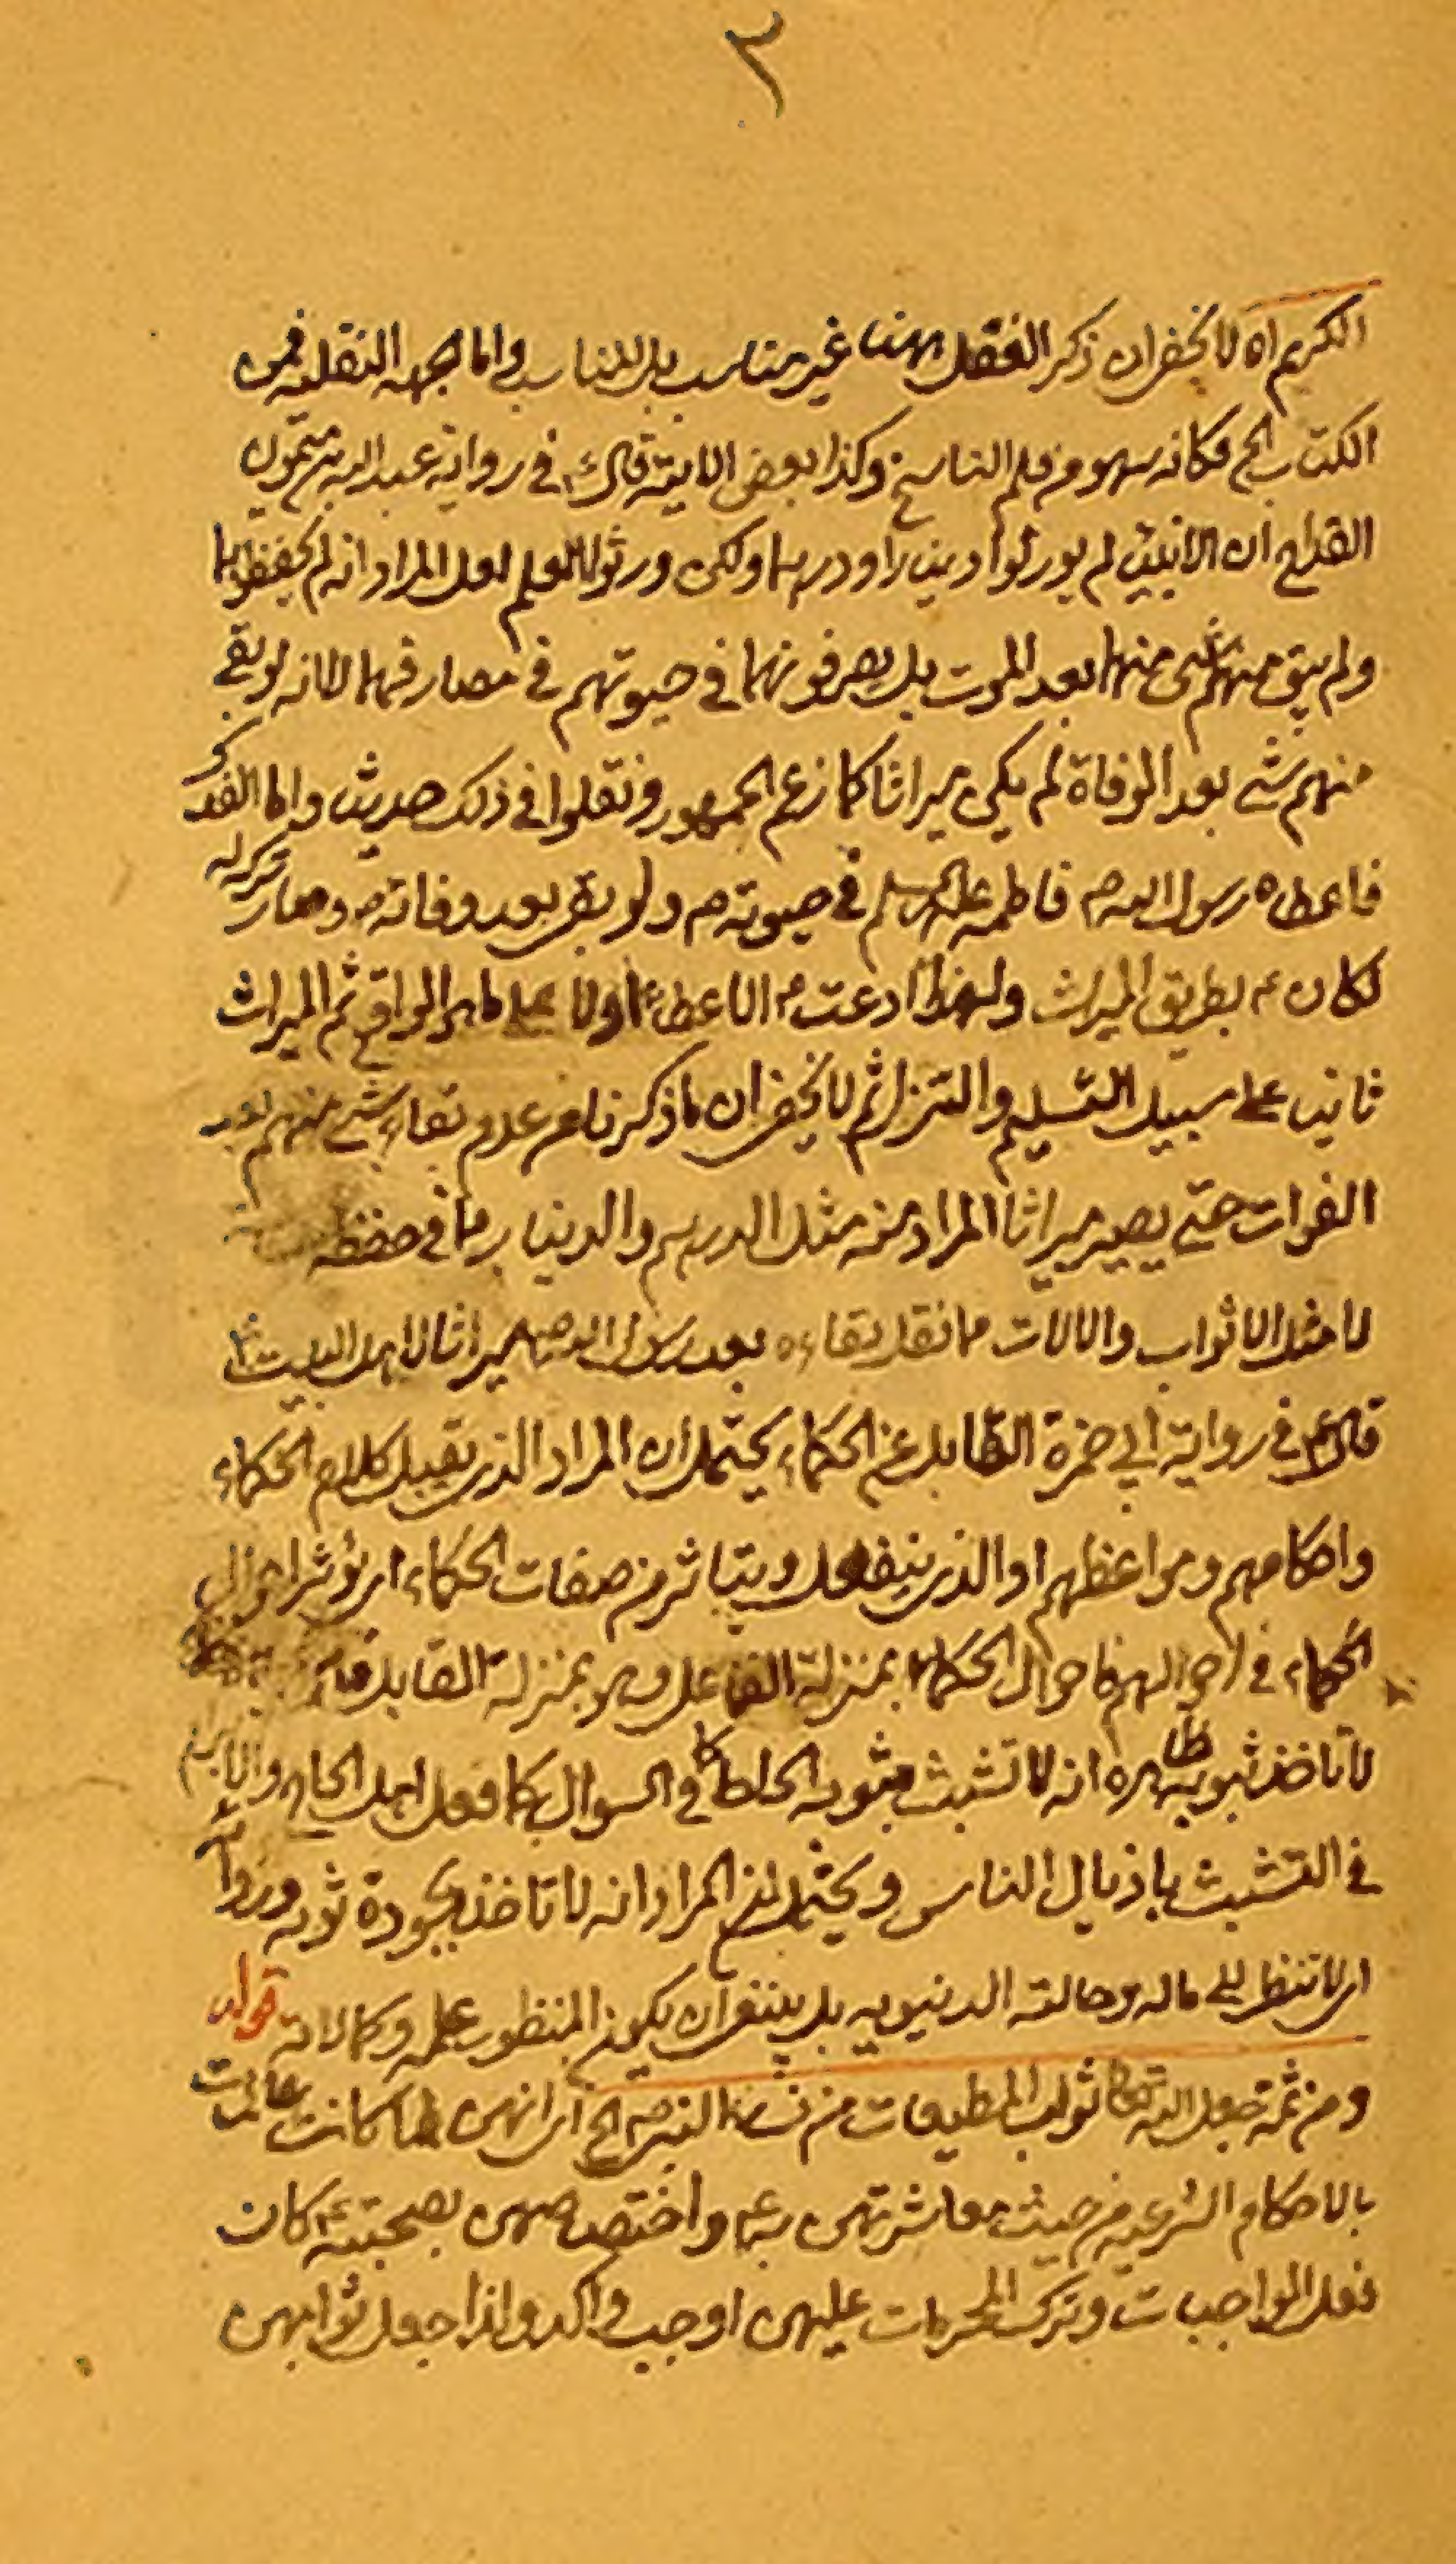 ٣
الكريم اه لا يخفى ان ذكر العقل ههنا غير مناسب بل المناسب واما الجهه النقليه فمن
الكتاب الخ فكانه سهو من قلم الناسخ وكذا بعض الابنية قال في رواية عبد الله بن ميمون
القداح ان الانبياء لم يورثوا دينارا ودرهما ولكن ورثوا العلم لعل المراد انه لم يحفظوها
ولم يبق منهم شئ منها بعد الموت بل يصرفونها في حيوتهم في مصارفها لا انه لو بقي
منهم شئ بعد الوفاة لم يكن ميراثا كما زعم الجمهور ونقلوا في ذلك حديثا واما الفدك
فاعطاه رسول الله ص فاطمه عليها السلم في حيوته ص ولو بقى بعد وفاته ص وصار تركه
لكان بطريق الميراث ولهذا ادعت الاعطاء اولا على ما هو الواقع ثم الميراث
ثانيا على سبيل التسليم والتنزل ثم لا يخفى ان ما ذكرنا من عدم بقاء شئ منهم بعد
الفوات حتى يصير ميراثا المراد منه مثل الدرهم والدينار مما في حفظه
لا مثل الاثواب والالات مما نقل بقاءه بعد رسول الله ص ميراثا لاهل البيت
قال في رواية ابي حمزة القابل عن الحكماء يحتمل ان المراد الذى يقبل كلام الحكماء
واحكامهم ومواعظهم او الذى ينفعل ويتاثر من صفات الحكماء اى يؤثر احوال
الحكماء في احوالهم فاحوال الحكماء بمنزلة الفاعل وهو بمنزلة القابل
لا تاخذ بثوبه ظاهره انه لا تشبث بثوبه الحاحا في السوال كما فعل اهل الحاجه
في التشبث باذيال الناس ويحتمل ان المراد انه لا تاخذ بجودة ثوبه وردائه
اى لا تنظر الى ماله وحالته الدنيويه بل ينبغى ان يكون المنظور علمه وكمالاته قوله
ومن ثمة جعل الله تعالى ثواب المطيعات من نساء النبى ص الخ اى انهن لما كانت عالمات
بالاحكام الشرعيه من حيث معاشرتهن معه واختصاصهن بصحبته كان
فعل الواجبات وترك المحرمات عليهن اوجب واكد ولذا جعل ثوابهن